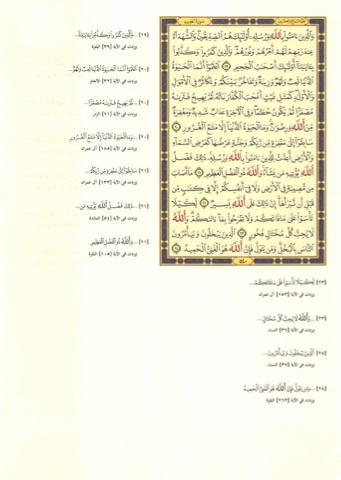 وَالَّذِينَ ءَامَنُوا بِاللَّهِ وَرُسُلِهِ أُولَٰئِكَ هُمُ الصِّدِّيقُونَ وَالشُّهَدَاءُ
عِندَ رَبِّهِمْ لَهُمْ أَجْرُهُمْ وَنُورُهُمْ وَالَّذِينَ كَفَرُوا وَكَذَّبُوا
بِـَٔايَاتِنَا أُولَٰئِكَ أَصْحَابُ الْجَحِيمِ ١٩ اعْلَمُوا أَنَّمَا الْحَيَوٰةُ الدُّنْيَا
لَعِبٌ وَلَهْوٌ وَزِينَةٌ وَتَفَاخُرٌ بَيْنَكُمْ وَتَكَاثُرٌ فِي الْأَمْوَالِ
وَالْأَوْلَادِ كَمَثَلِ غَيْثٍ أَعْجَبَ الْكُفَّارَ نَبَاتُهُ ثُمَّ يَهِيجُ فَتَرَاهُ
مُصْفَرًّا ثُمَّ يَكُونُ حُطَامًا وَفِي الْآخِرَةِ عَذَابٌ شَدِيدٌ وَمَغْفِرَةٌ
مِّنَ اللَّهِ وَرِضْوَانٌ وَمَا الْحَيَوٰةُ الدُّنْيَا إِلَّا مَتَاعُ الْغُرُورِ ٢٠
سَابِقُوا إِلَىٰ مَغْفِرَةٍ مِّن رَّبِّكُمْ وَجَنَّةٍ عَرْضُهَا كَعَرْضِ السَّمَاءِ
وَالْأَرْضِ أُعِدَّتْ لِلَّذِينَ ءَامَنُوا بِاللَّهِ وَرُسُلِهِ ذَٰلِكَ فَضْلُ
اللَّهِ يُؤْتِيهِ مَن يَشَاءُ وَاللَّهُ ذُو الْفَضْلِ الْعَظِيمِ ٢١ مَا أَصَابَ
مِن مُّصِيبَةٍ فِي الْأَرْضِ وَلَا فِي أَنفُسِكُمْ إِلَّا فِي كِتَابٍ مِّن
قَبْلِ أَن نَّبْرَأَهَا إِنَّ ذَٰلِكَ عَلَى اللَّهِ يَسِيرٌ ٢٢ لِّكَيْلَا
تَأْسَوْا عَلَىٰ مَا فَاتَكُمْ وَلَا تَفْرَحُوا بِمَا ءَاتَاكُمْ وَاللَّهُ
لَا يُحِبُّ كُلَّ مُخْتَالٍ فَخُورٍ ٢٣ الَّذِينَ يَبْخَلُونَ وَيَأْمُرُونَ
النَّاسَ بِالْبُخْلِ وَمَن يَتَوَلَّ فَإِنَّ اللَّهَ هُوَ الْغَنِيُّ الْحَمِيدُ ٢٤
٥٤٠
[١٩] ...وَالَّذِينَ كَفَرُوا وَكَذَّبُوا بِـَٔايَاتِنَا...
وردت في الآية [٣٩] البقرة
[٢٠] اعْلَمُوا أَنَّمَا الْحَيَوٰةُ الدُّنْيَا لَعِبٌ وَلَهْوٌ...
وردت في الآية [٣٢] الأنعام
[٢٠] ...ثُمَّ يَهِيجُ فَتَرَاهُ مُصْفَرًّا...
وردت في الآية [٢١] الزمر
[٢٠] ...وَمَا الْحَيَوٰةُ الدُّنْيَا إِلَّا مَتَاعُ الْغُرُورِ
وردت في الآية [١٨٥] آل عمران
[٢١] سَابِقُوا إِلَىٰ مَغْفِرَةٍ مِّن رَّبِّكُمْ...
وردت في الآية [١٣٣] آل عمران
[٢١] ...ذَٰلِكَ فَضْلُ اللَّهِ يُؤْتِيهِ مَن...
وردت في الآية [٥٤] المائدة
[٢١] ...وَاللَّهُ ذُو الْفَضْلِ الْعَظِيمِ
وردت في الآية [١٠٥] البقرة
[٢٣] لِّكَيْلَا تَأْسَوْا عَلَىٰ مَا فَاتَكُمْ...
وردت في الآية [١٥٣] آل عمران
[٢٣] ...وَاللَّهُ لَا يُحِبُّ كُلَّ مُخْتَالٍ...
وردت في الآية [٣٦] النساء
[٢٤] الَّذِينَ يَبْخَلُونَ وَيَأْمُرُونَ...
وردت في الآية [٣٧] النساء
[٢٤] ...وَمَن يَتَوَلَّ فَإِنَّ اللَّهَ هُوَ الْغَنِيُّ الْحَمِيدُ
وردت في الآية [٢٦٧] البقرة